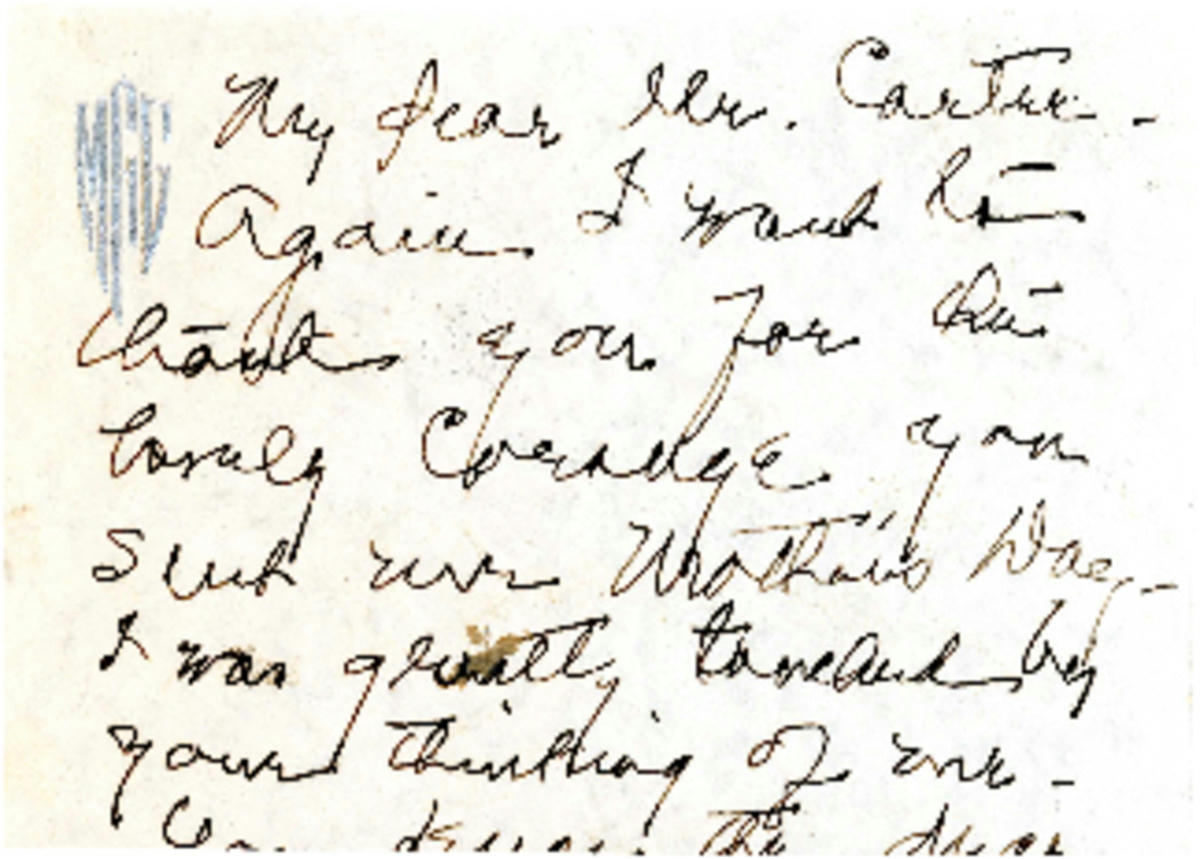 My dear Mr. Carter -
Again I want to
thank you for the
lovely corsage you
sent me Mother's Day -
I was greatly touched by
your thinking of me -
the